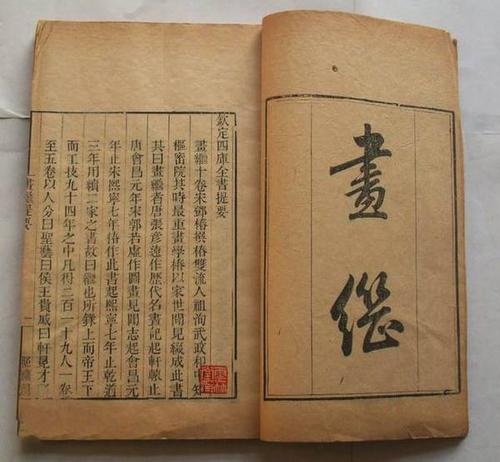 畫
繼
欽定四庫全書提要
畫繼十卷宋鄧椿撰椿雙流人祖洵武政和中知
樞密院其時最重畫學椿以家世聞見綴成此書
其曰畫繼者唐張彥遠作歷代名畫記起軒轅止
唐會昌元年宋郭若虛作圖畫見聞志起會昌元
年止宋熙寧七年椿作此書起熙寧七年止乾道
三年用續二家之書故曰繼也所錄上而帝王下
而工技九十四年之中凡得二百一十九人一卷
至五卷以人分曰聖藝曰侯王貴戚曰軒冕才
畫繼提要
一